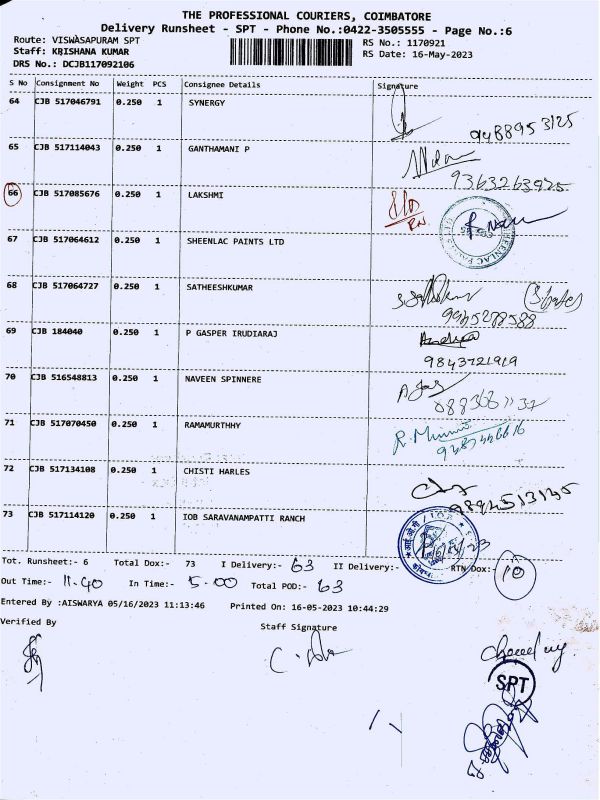 THE PROFESSIONAL COURIERS, COIMBATORE
Delivery Runsheet - SPT - Phone No.:0422-3505555 - Page No.:6
Route: VISWASAPURAM SPT
RS No.: 1170921
Staff: KRISHANA KUMAR
RS Date: 16-May-2023
DRS No.: DCJB117092106
S No Consignment No Weight PCS Consignee Details Signature
64 CJB 517046791 0.250 1 SYNERGY
9488953125
65 CJB 517114043 0.250 1 GANTHAMANI P
9363263925
66 CJB 517085676 0.250 1 LAKSHMI
67 CJB 517064612 0.250 1 SHEENLAC PAINTS LTD
68 CJB 517064727 0.250 1 SATHEESHKUMAR
69 CJB 184040 0.250 1 P GASPER IRUDIARAJ
9843721919
70 CJB 516548813 0.250 1 NAVEEN SPINNERE
71 CJB 517070450 0.250 1 RAMAMURTHHY
72 CJB 517134108 0.250 1 CHISTI HARLES
73 CJB 517114120 0.250 1 IOB SARAVANAMPATTI RANCH
Tot. Runsheet:- 6 Total Dox:- 73 I Delivery:- 63 II Delivery:- RTN Dox:- 10
Out Time:- 11.40 In Time:- 5.00 Total POD:- 63
Entered By :AISWARYA 05/16/2023 11:13:46 Printed On: 16-05-2023 10:44:29
Verified By Staff Signature
SPT